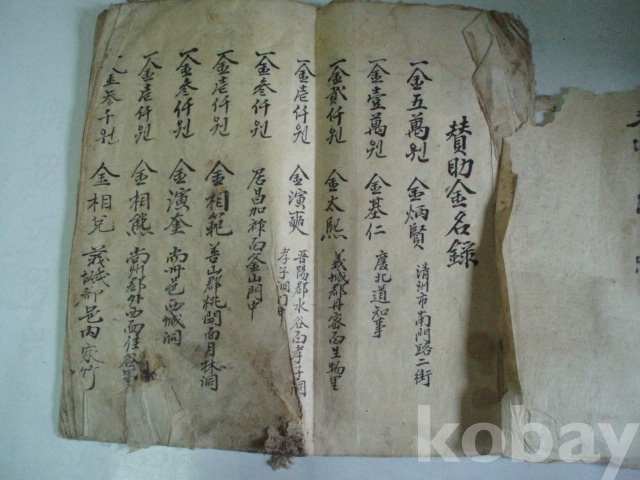 贊助金名錄
一金五萬원 金炳賢 清州市南門路二街
一金壹萬원 金基仁 慶北道知事
一金貳仟원 金太熙 義城郡丹密面生物里
一金壱仟원 金演奭 晋陽郡水谷面孝子洞
孝子洞门中
一金叁仟원 居昌加祚面釜山門中
一金壱仟원 金相範 善山郡桃開面月林洞
一金叁仟원 金演奎 尚州邑西城洞
一金壱仟원 金相熊 尚州郡外西面佳谷里
一金叁千원 金相 義城郡邑内
kobay